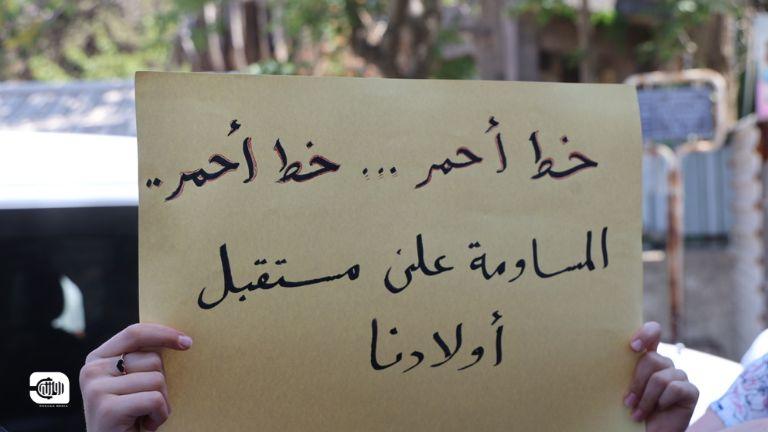 خط أحمر ... خط أحمر..
المساومة على مستقبل
أولادنا